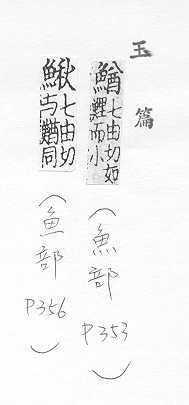 玉篇
鰌七由切如鯉而小
(魚部 P353)
鰍七由切与鰌同
(魚部 P356)